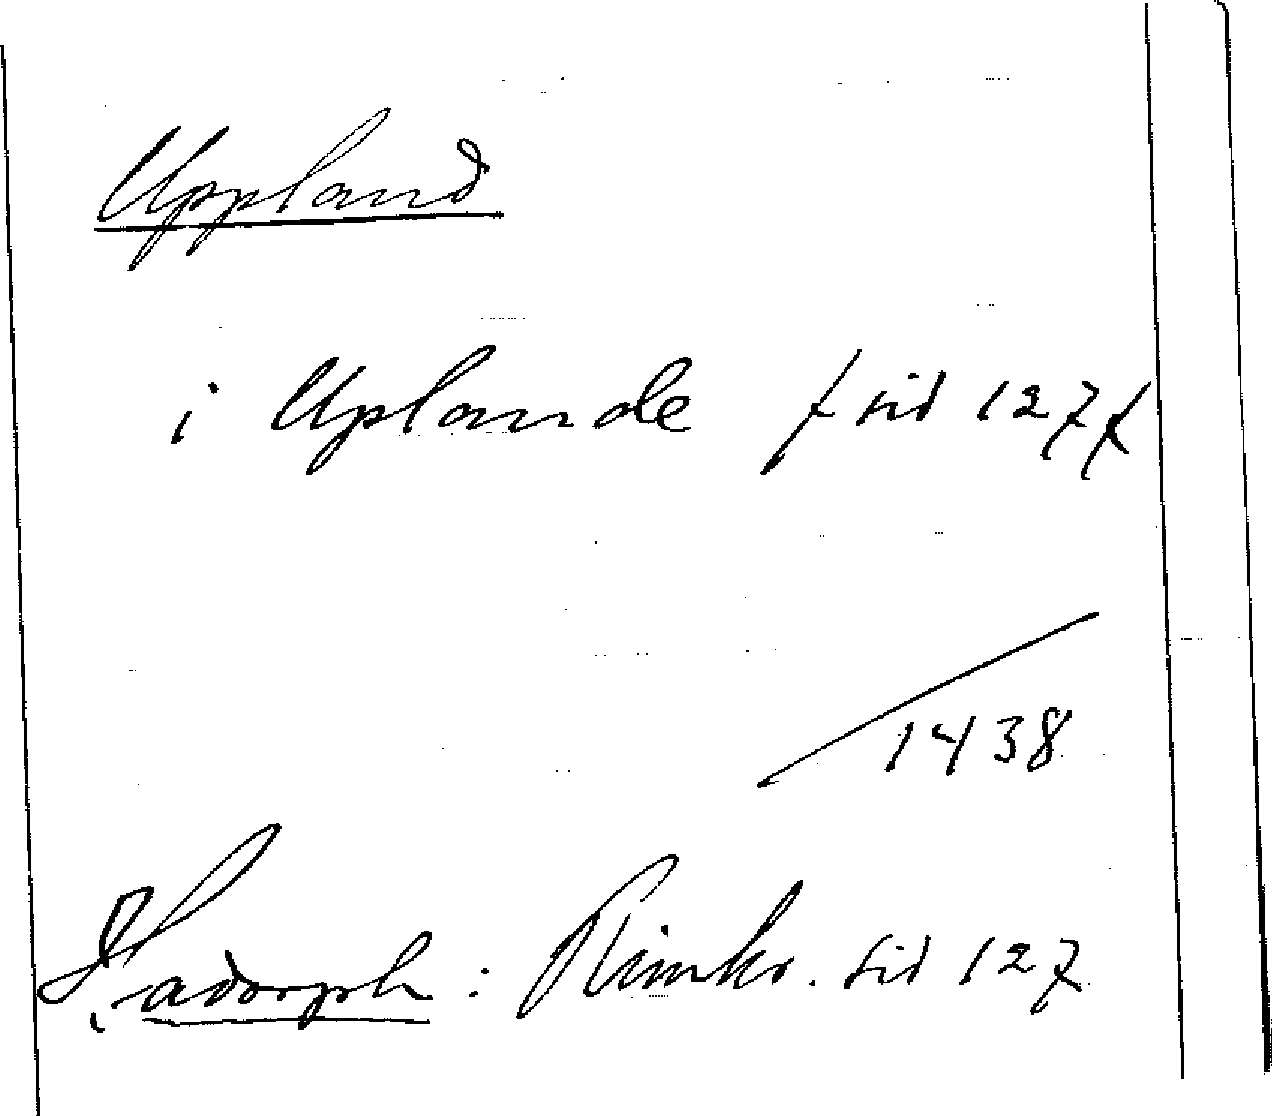 Uppland
i Uplande / sid 127 /
1438
Hadorph: Rimkr. sid 127